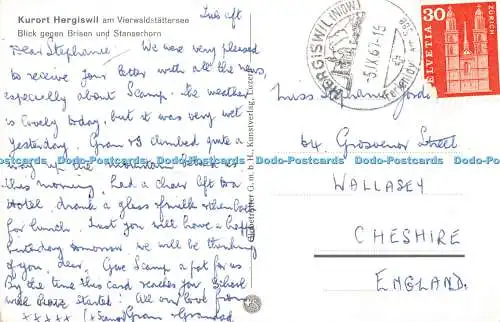 Kurort Hergiswil am Vierwaldstättersee
Blick gegen Brisen und Stanserhorn
Tues aft
Dear Stephanie. We were very pleased
to receive your letter with all the news,
especially about Scamp. The weather
is lovely today, but it was very wet
yesterday. Gran & I climbed quite a
way up the mountain
this morning, had a chair lift to a
Hotel, drank a glass of milk & then back
for lunch. Just you will have a happy
birthday tomorrow. We will be thinking
of you, dear. Give Scamp a pat for us
By the time this card reaches you, School
will have started! All our love from
xxxxx (x Scamp) Gran & Grandad
HERGISWIL (NIDW.)
-5.IX.67-15
30
HELVETIA
ZÜRICH
Miss Stephanie
64. Grosvenor Street
WALLASEY
CHESHIRE
ENGLAND.
Globetrotter G. m. b. H., Kunstverlag, Luzern
Dodo-Postcards